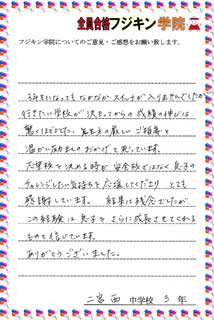 全員合格フジキン学院
フジキン学院についてのご意見・ご感想をお願い致します。
3年になってもなかなかスイッチが入りませんでしたが
行きたい学校が決まってからの成績の伸びは
驚くほどでした。先生方の厳しいご指導と
温かい励ましのおかげと思っています。
志望校を決める時が安全校ではなく息子の
チャレンジしたい気持ちを応援してくださり とても
感謝しています。 結果は残念でしたが
この経験は息子をさらに成長させてくれる
ものと信じています。
ありがとうございました。
二宮西 中学校 3 年